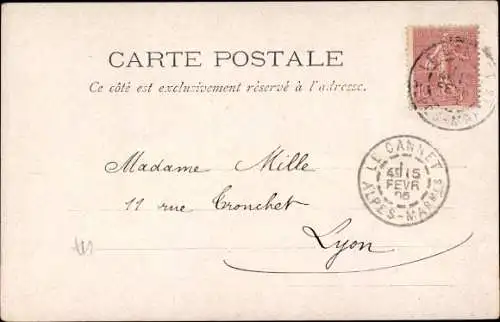 CARTE POSTALE
Ce côté est exclusivement réservé à l'adresse.
LE CANNET
15
FEVR
05
ALPES-MARMES
Madame Mille
11 rue Tronchet
Lyon